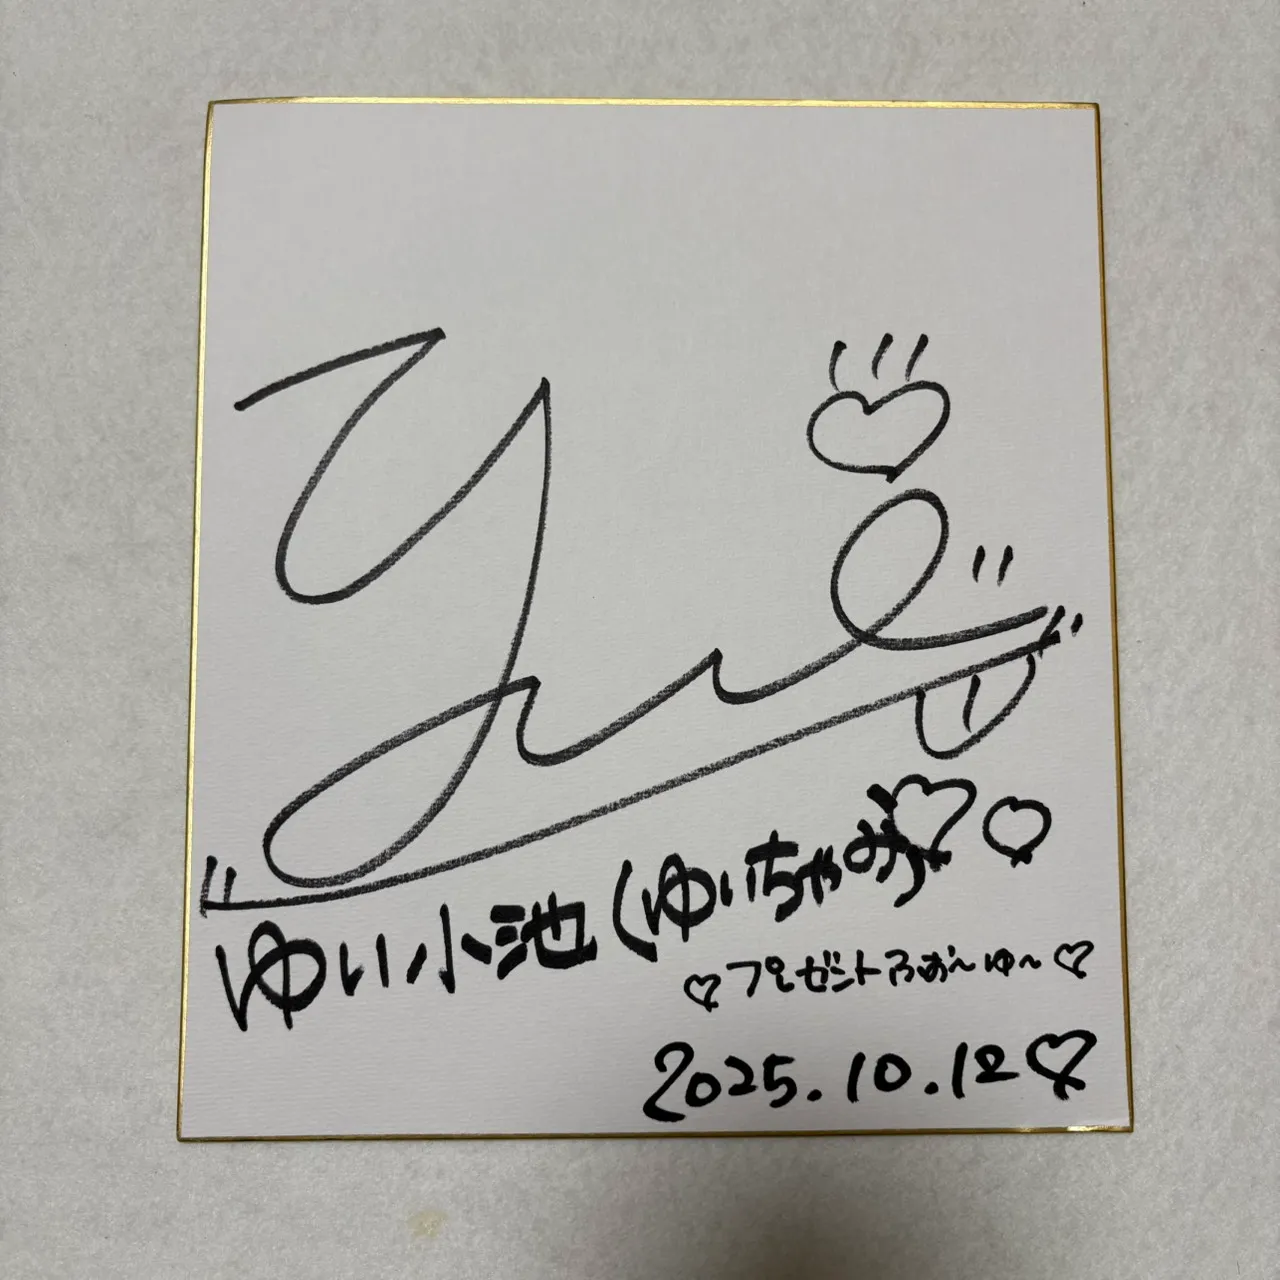 Yui
ゆい小池(ゆいちゃみ♡♡
♡プレゼントふぉ〜ゆ〜♡
2025.10.12♡